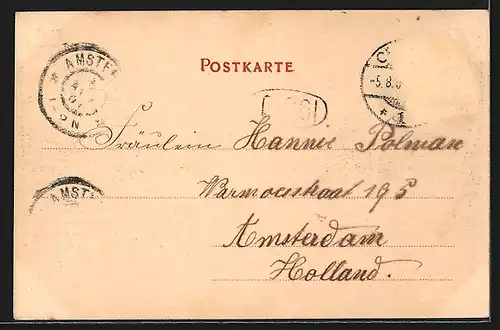 POSTKARTE
AMSTE
Fräulein Hannie Polman
Warmoesstraat 195
AMST
Amsterdam
Holland.